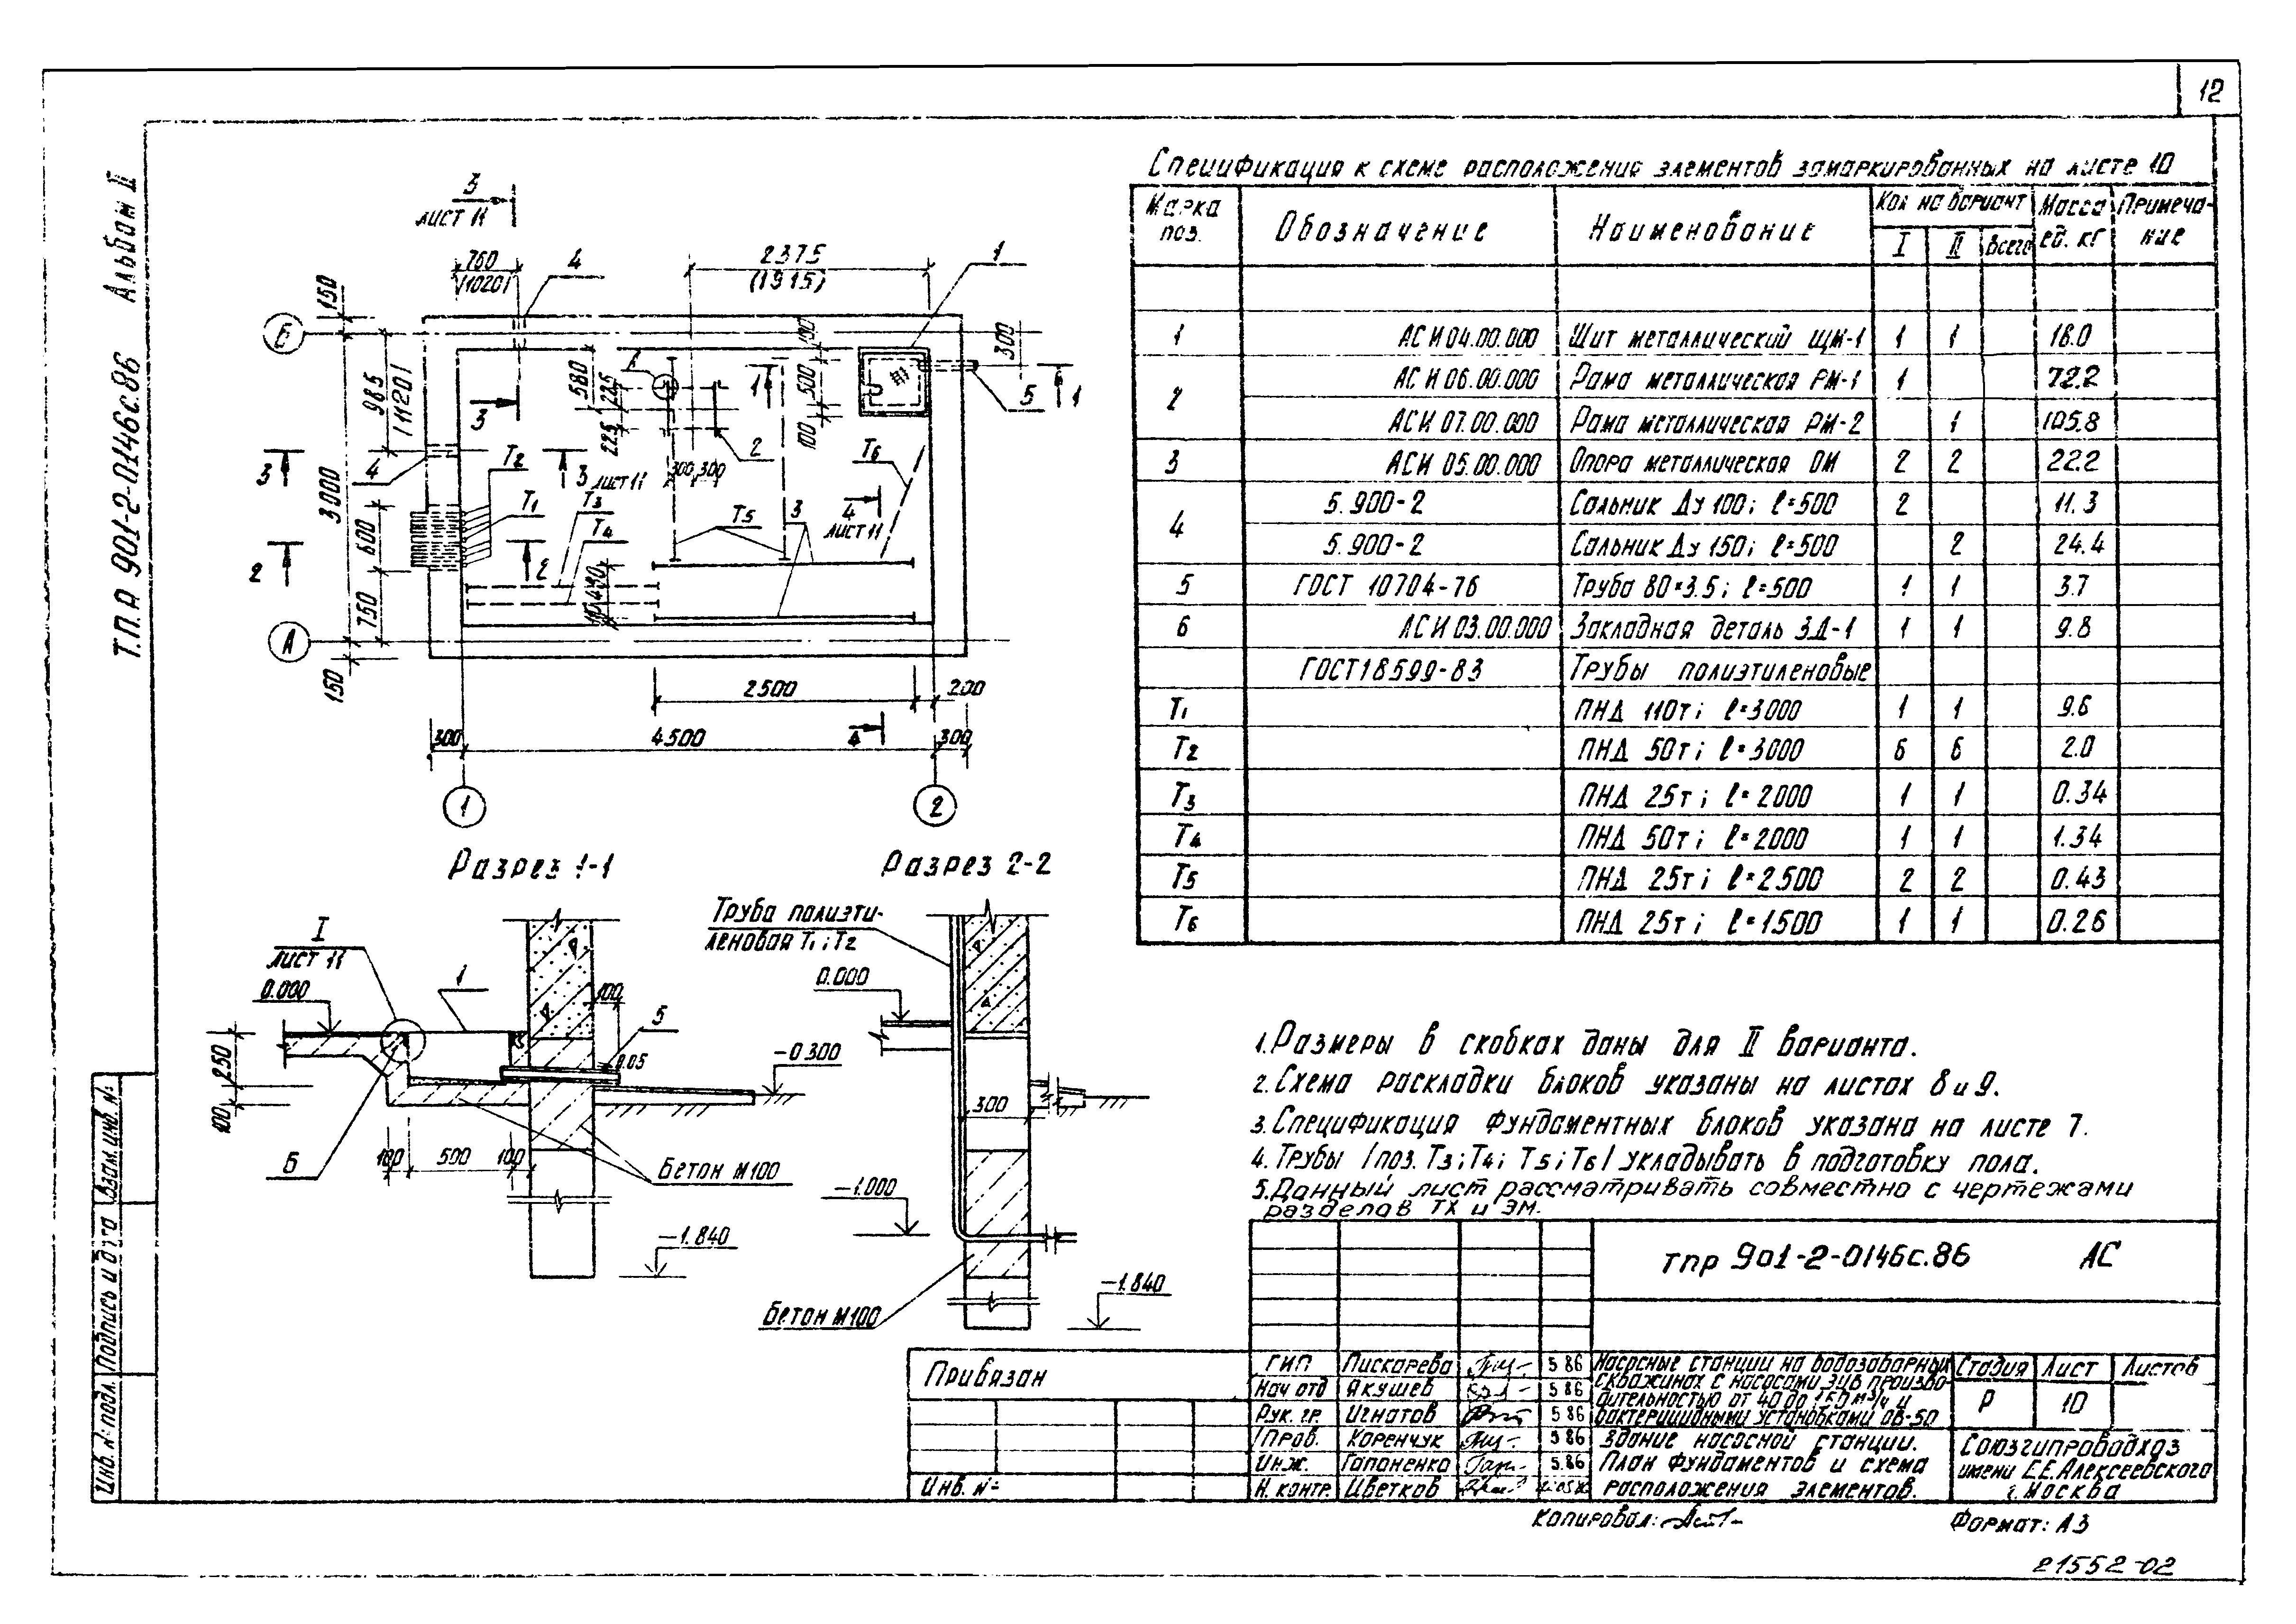 12
Т.П.А 901-2-0146с.86 Альбом II
3
лист 11
760
/1020/
4
2375
(1915)
1
150
Б
985
/1120/
3000
580
225
225
100
500
100
300
3
1
1
5
2
Т2
Т6
3
4
3 лист 11
300 300
Т1
Т3
Т4
Т5
3
4
лист 11
600
2
2
750
А
150
2500
200
300
4500
4
300
1
2
Спецификация к схеме расположения элементов замаркированных на листе 10
Марка поз. Обозначение Наименование Кол на вариант Масса ед. кг Примеча-ние
I II Всего
1 АСИ 04.00.000 Щит металлический ЩМ-1 1 1 18.0
2 АСИ 06.00.000 Рама металлическая РМ-1 1 72.2
АСИ 07.00.000 Рама металлическая РМ-2 1 105.8
3 АСИ 05.00.000 Опора металлическая ОМ 2 2 22.2
4 5.900-2 Сальник Ду 100; ℓ=500 2 11.3
5.900-2 Сальник Ду 150; ℓ=500 2 24.4
5 ГОСТ 10704-76 Труба 80×3.5; ℓ=500 1 1 3.7
6 АСИ 03.00.000 Закладная деталь ЗД-1 1 1 9.8
ГОСТ 18599-83 Трубы полиэтиленовые
Т1 ПНД 110т; ℓ=3000 1 1 9.6
Т2 ПНД 50т; ℓ=3000 6 6 2.0
Т3 ПНД 25т; ℓ=2000 1 1 0.34
Т4 ПНД 50т; ℓ=2000 1 1 1.34
Т5 ПНД 25т; ℓ=2500 2 2 0.43
Т6 ПНД 25т; ℓ=1500 1 1 0.26
Разрез 1-1
I
лист 11
0.000
1
100
5
0.05
-0.300
250
100
6
100 500 100
Бетон М100
-1.840
Разрез 2-2
Труба полиэти-
леновая Т1; Т2
0.000
300
-1.000
Бетон М100
-1.840
1. Размеры в скобках даны для II варианта.
2. Схема раскладки блоков указаны на листах 8 и 9.
3. Спецификация фундаментных блоков указана на листе 7.
4. Трубы /поз. Т3; Т4; Т5; Т6/ укладывать в подготовку пола.
5. Данный лист рассматривать совместно с чертежами
разделов ТХ и ЭМ.
тпр 901-2-0146с.86 АС
Привязан
Инв. №
ГИП Пискарева 5.86
Нач отд Якушев 5.86
Рук. гр. Игнатов 5.86
Пров. Коренчук 5.86
Инж. Гапоненко 5.86
Н. контр. Цветков
Насосные станции на водозаборных
скважинах с насосами ЭЦВ произво-
дительностью от 40 до 150 м³/ч и
бактерицидными установками ОВ-50
Здание насосной станции.
План фундаментов и схема
расположения элементов.
Стадия Лист Листов
Р 10
Союзгипроводхоз
имени Е.Е.Алексеевского
г. Москва
Взам. инв. №
Подпись и дата
Инв. № подл.
Копировал:
Формат: А3
21552-02